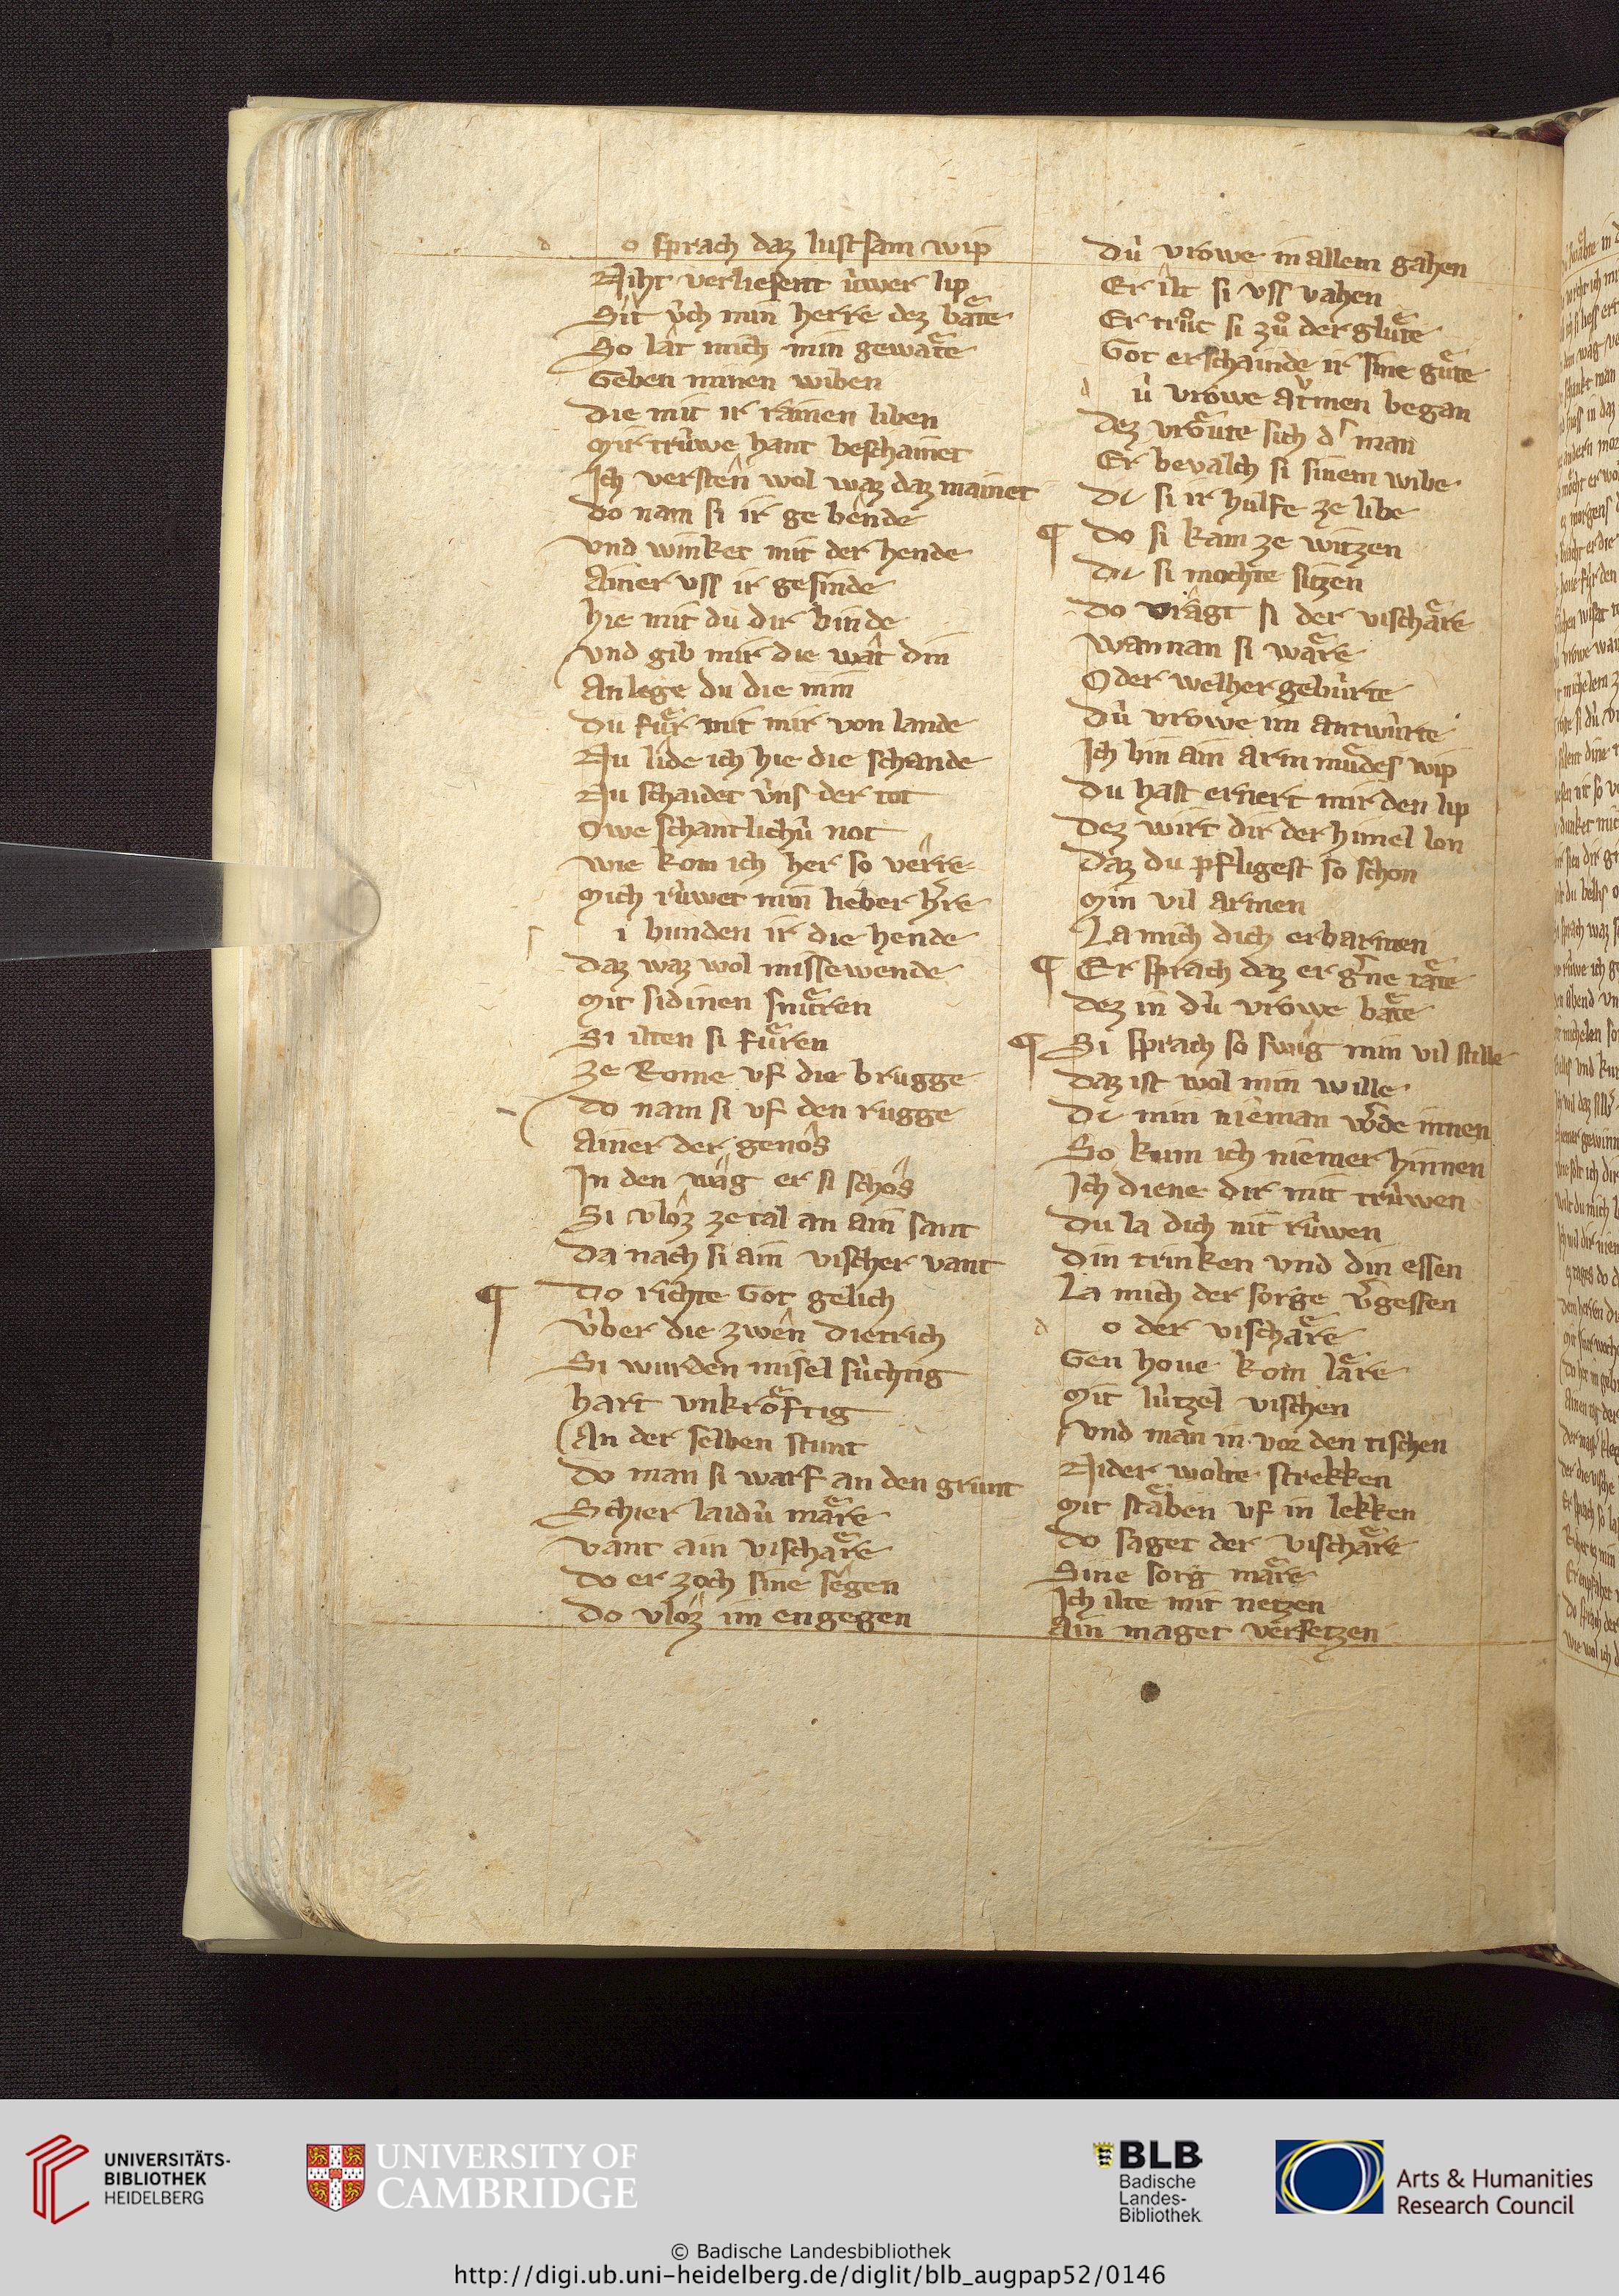 d o sprach daz lustsam wip
Niht verliesent úwer lip
Sit v́ch min herre dez baͤte
So lât mich min gewaͤte
Geben minen wiben
die mit ir rainen liben
Mir trúwe hant beschainet
Ich verstên wol waz daz mainet
do nam si ir ge bênde
vnd winket mit der hende
Ainer vss ir gesinde
hie mit du dir binde
vnd gib mir die wât din
An lege du die min
du fuͤr mit mir von lande
Nu lîde ich hie die schande
Nu schaidet v́ns der tot
Owe schantlichú not
wie kom ich her so verre
Mich rúwet min lieber hr̄e
i bunden ir die hende
daz waz wol missewende
Mit sidinen snuͤren
Si ilten si fuͤren
ze Rome vf die brugge
do nam si vf den rugge
Ainer der genôs
In den wâg er si schôs
Si vlôz ze tal an ain sant
da nach si ain vischer vant
¶ do richte Got gelich
v́ber die zwên dietrich
Si wurden misel súchtig
hart vnkroͤftig
An der selben stunt
do man si warf an den grunt
Schier laidú maͤre
vant ain vischaͤre
do er zoch sine sêgen
do vlôz im engegen
dú vrowe in allem gâhen
Er îlt si vss vahen
Er truͦc si zuͦ der gluͤte
Got erschainde ir sine guͤte
d ú vrowe âtmen began
dez vroͤute sich d' man
Er bevalch si sinem wibe
dc si ir hulfe ze libe
¶ do si kam ze witzen
dc si mochte sitzen
do vrâgt si der vischaͤre
wannan si waͤre
Oder welher gebúrte
dú vrowe im antwúrte
Ich bin ain arm muͤdes wip
du hast ernert mir den lip
dez wirt dir der himel lon
daz du pfligest so schon
Min vil armen
La mich dich erbarmen
¶ Er sprach daz er g'ne taͤte
dez in dú vrowe baͤte
¶ Si sprach so swig min vil stille
daz ist wol min wille
dc min nieman w'de innen
So kum ich niemer hinnen
Ich diene dir mit trúwen
du la dich nit rúwen
din trinken vnd din essen
La mich der sorge v'gessen
d o der vischaͤre
Gen houe kom laͤre
Mit lútzel vischen
vnd man in vor den tischen
Nider wolte strekken
Mit staͤben vf in lekken
do saget der vischaͤre
Sine sorg maͤre
Ich ilte mit netzen
Ain maget versetzen
UNIVERSITÄTS-
BIBLIOTHEK
HEIDELBERG
UNIVERSITY OF
CAMBRIDGE
BLB
Badische
Landes-
Bibliothek
Arts & Humanities
Research Council
© Badische Landesbibliothek
http://digi.ub.uni-heidelberg.de/diglit/blb_augpap52/0146